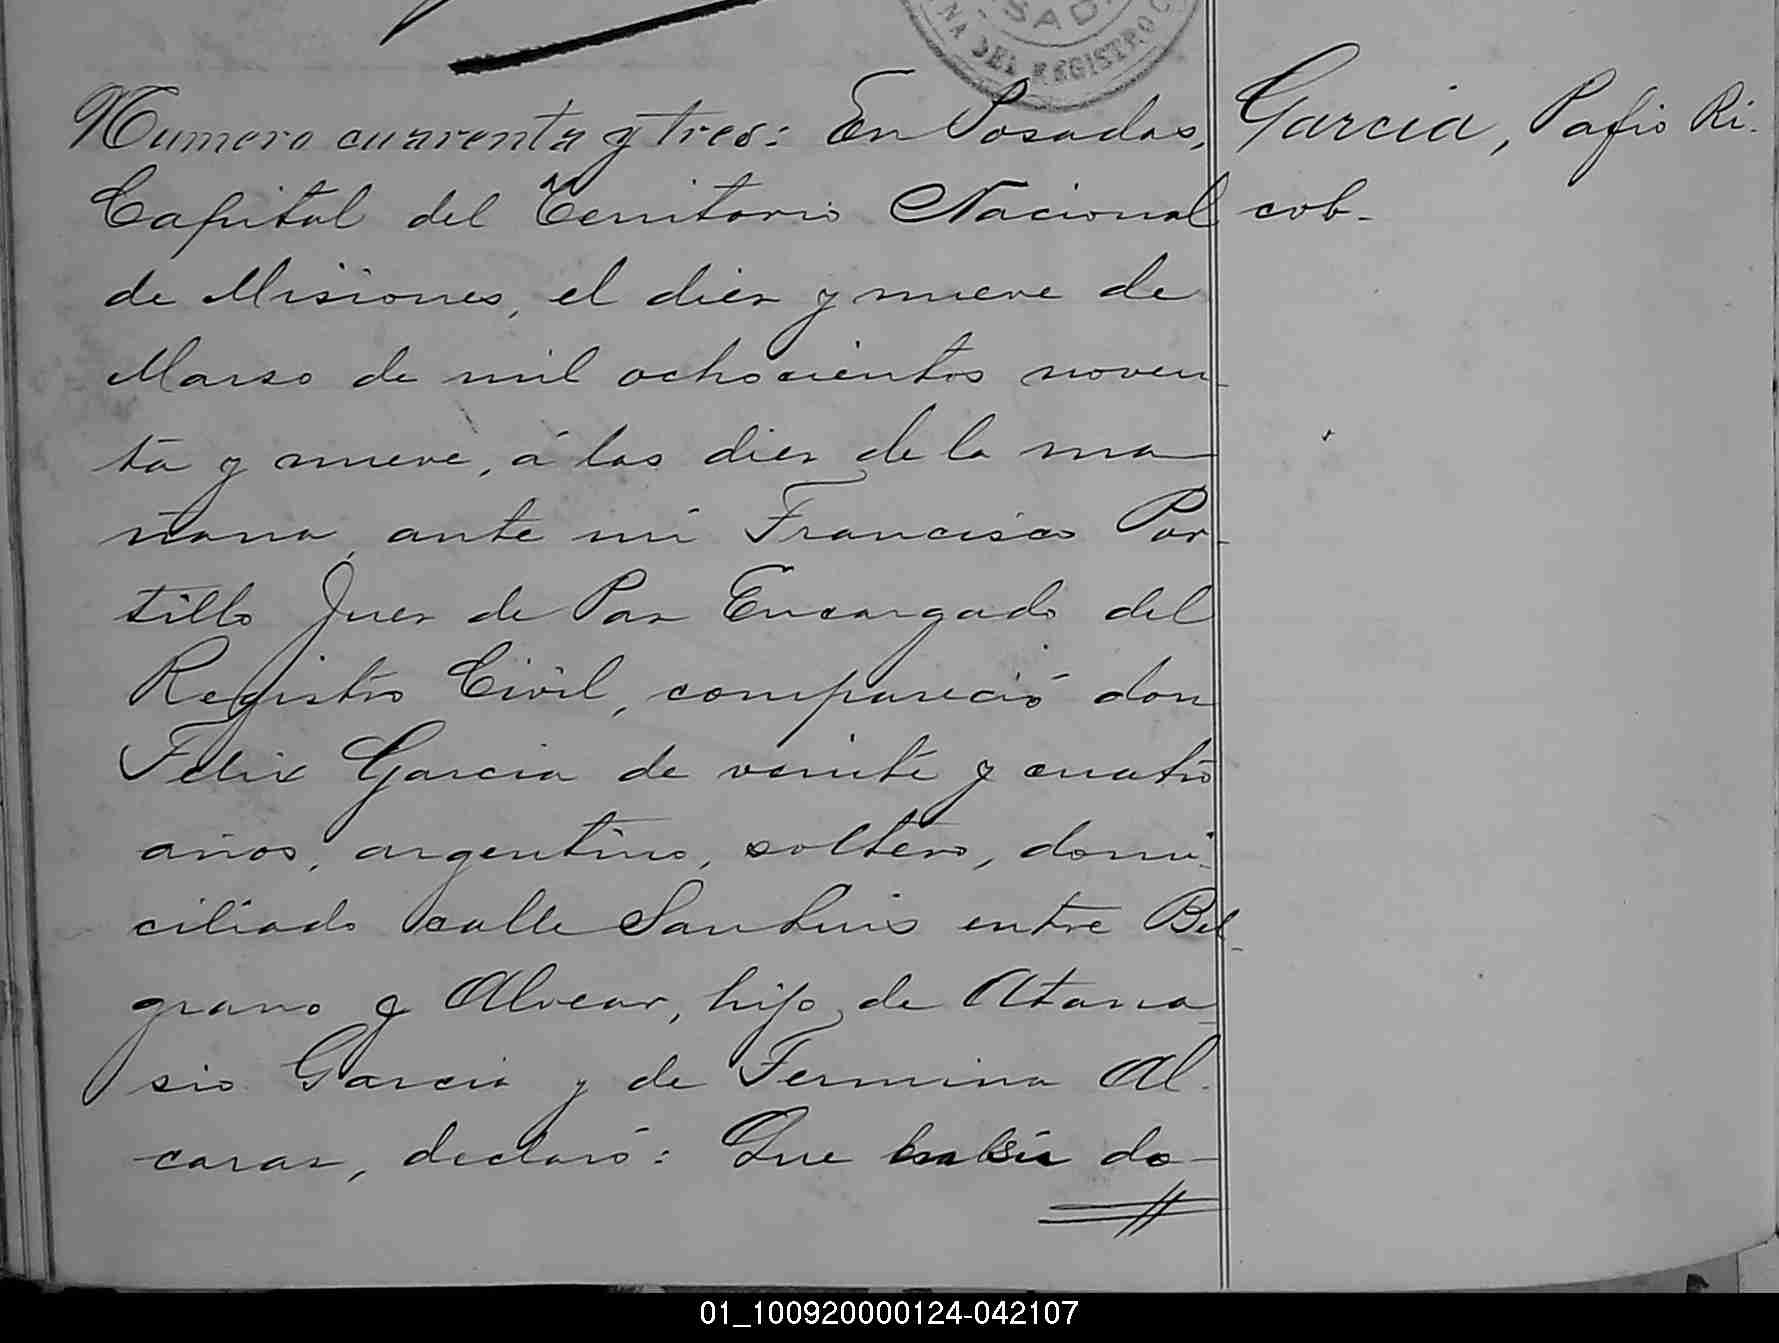 Numero cuarenta y tres: En Posadas,
Capital del Territorio Nacional
de Misiones, el diez y nueve de
Marzo de mil ochocientos noven-
ta y nueve, á las diez de la ma
ñana, ante mi Francisco Por-
tillo Juez de Paz Encargado del
Registro Civil, compareció don
Felix Garcia de veinte y cuatro
años, argentino, soltero, domi-
ciliado calle San Luis entre Bel-
grano y Alvear, hijo de Atana
sio Garcia y de Fermina Al-
caraz, declaró: Que habia do-
Garcia, Pafio Ri-
cob-
DEL REGISTRO
01_100920000124-042107